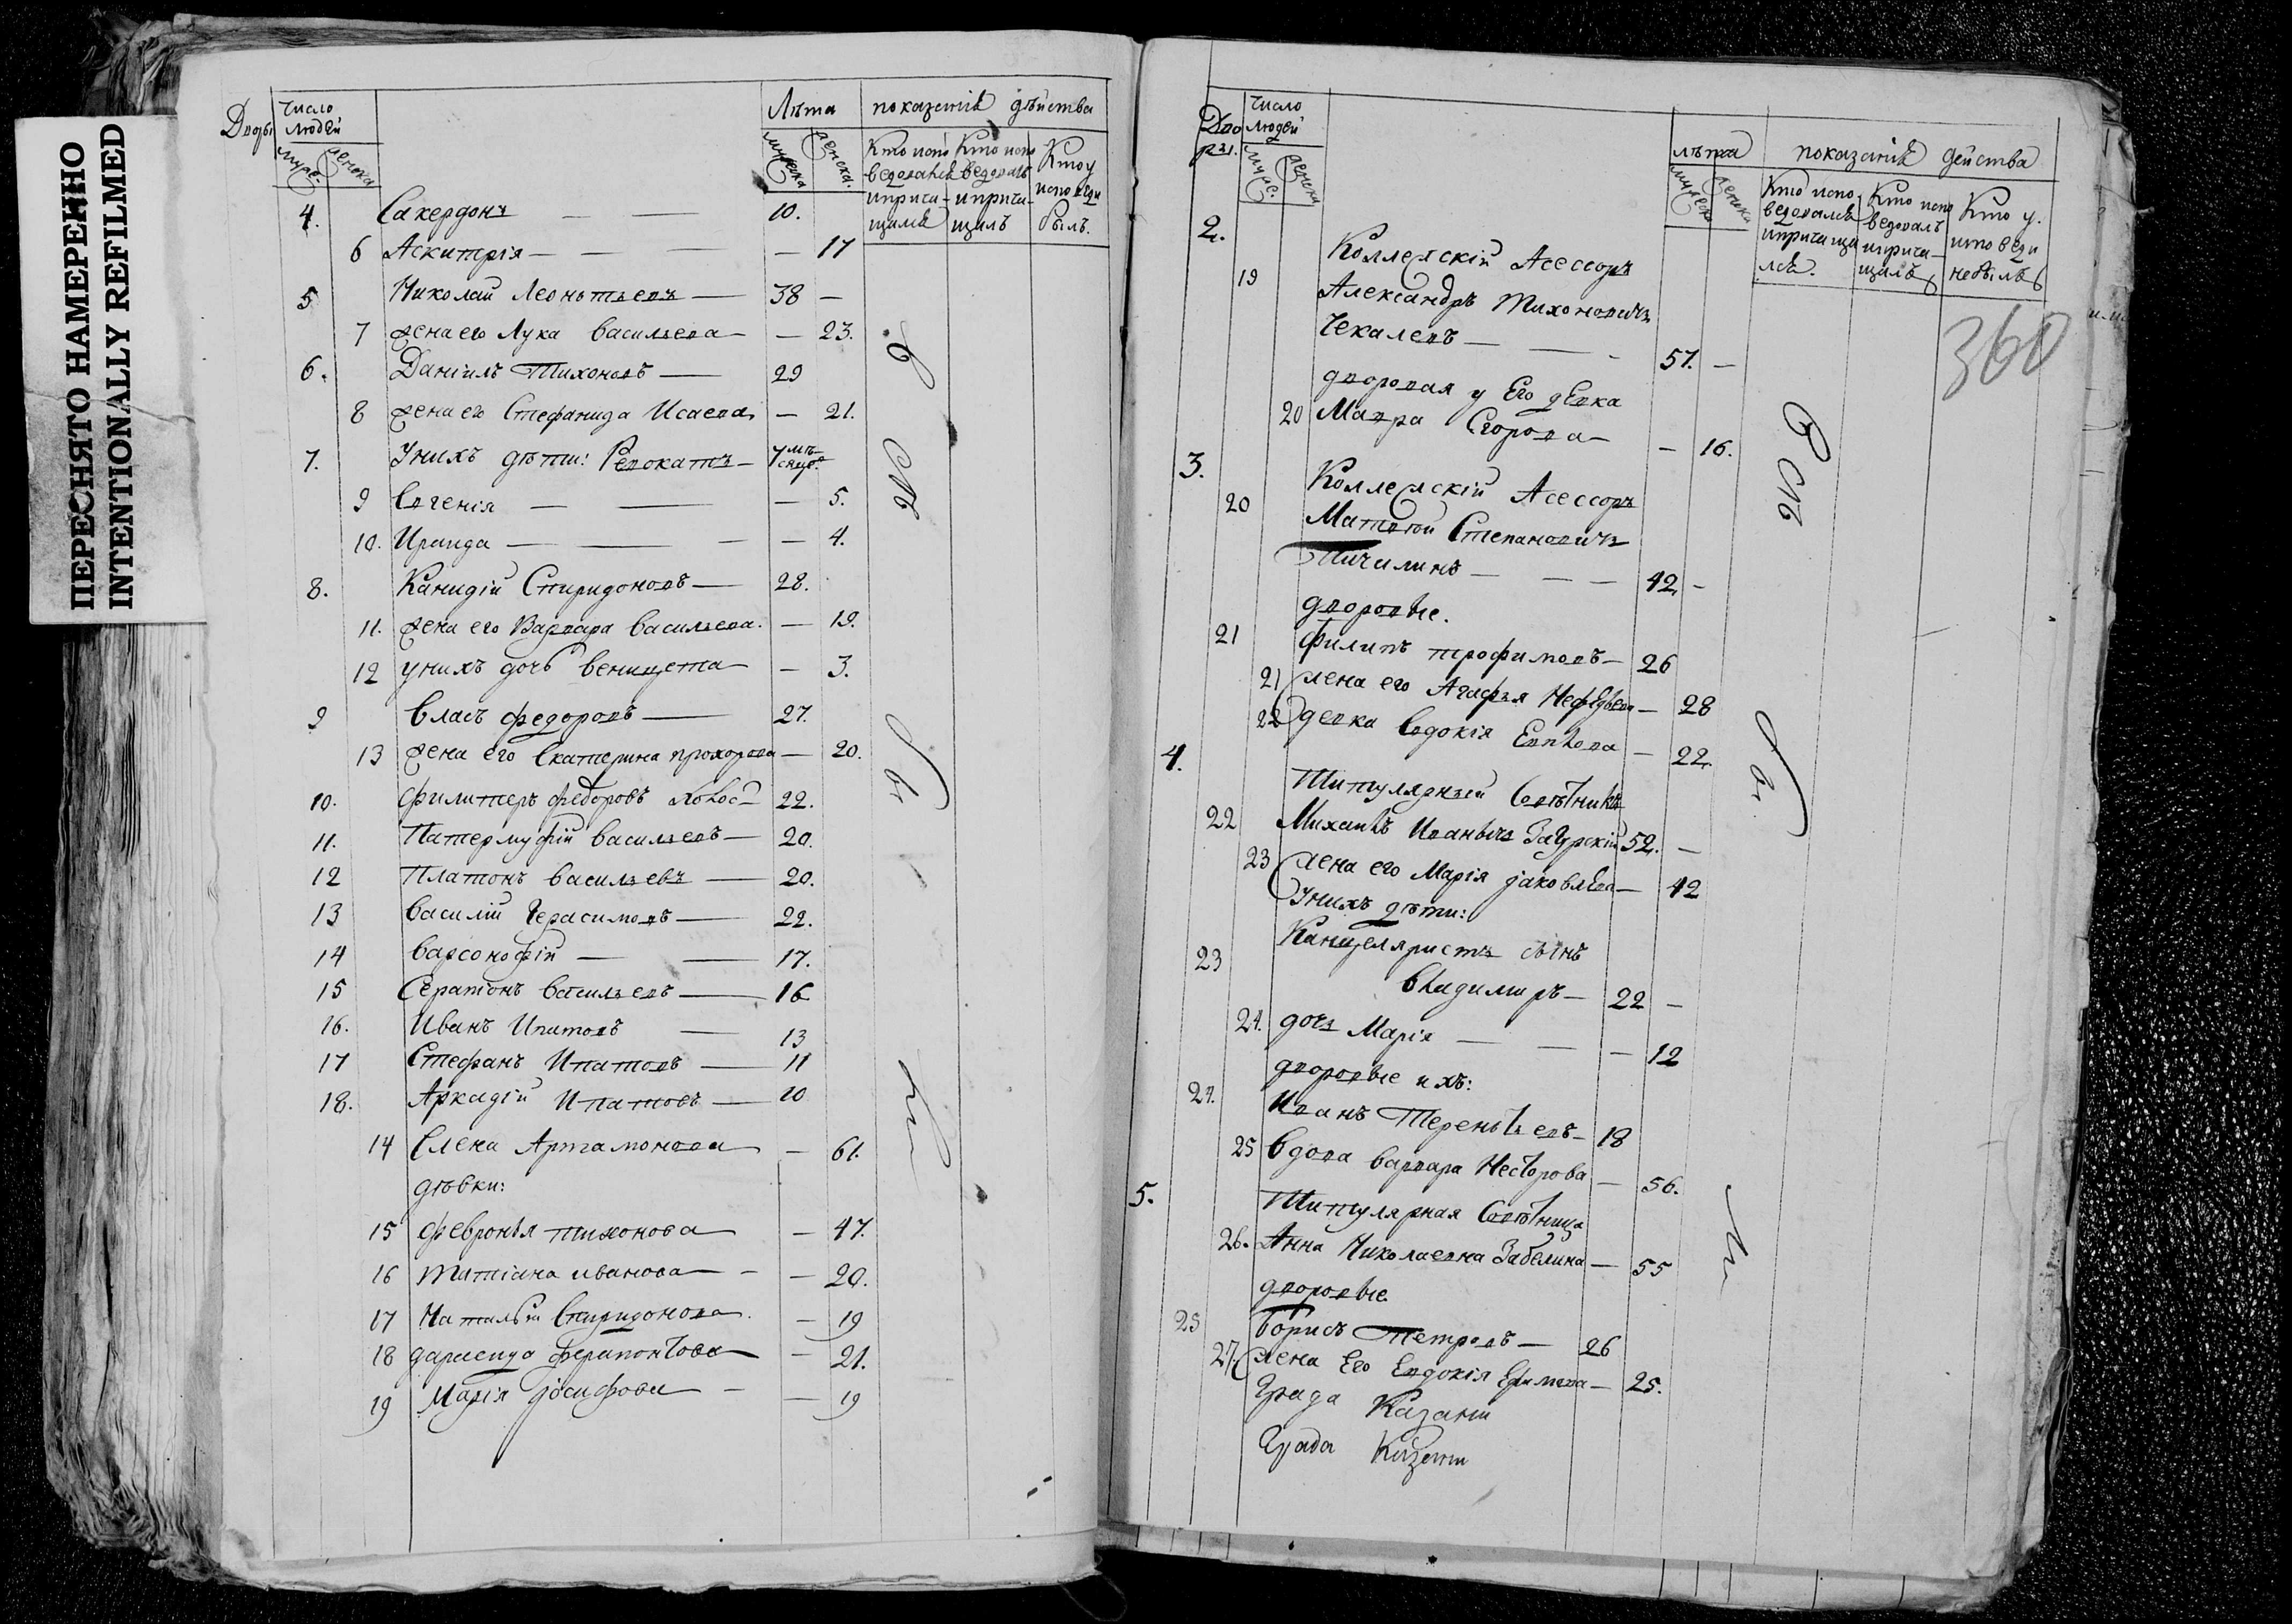 ПЕРЕСНЯТО НАМЕРЕННО
INTENTIONALLY REFILMED
Дворы Число людей Лѣта показанiѣ дѣйства
муже. женска мужеска женска. Кто испо ведовалсѣ и прича- щалсѣ Кто испо ведовалъ и приča- щалъ Кто у исповеди былъ.
4. Сакердонъ — — 10.
6 Аскитрiя — — — — 17
5 Николай Леонтьевъ — 38 —
7 жена его Лука Васильева — — 23.
6. Данiилъ Тихоновъ — 29
8 жена его Стефанида Исаева — 21.
7. У нихъ дѣти: Ревокатъ — 7 мѣ- сяцо.
9 Евгенiя — — — 5.
10. Ираида — — — — 4.
8. Канидiй Спиридоновъ — 28.
11. жена его Варвара Васильева. — 19.
12 у нихъ дочь Веницета — 3.
9 Власъ Федоровъ — 27.
13 жена его Екатерина Прохорова — 20.
10. Филитеръ Федоровъ холос — 22.
11. Патермуфiй Васильевъ — 20.
12 Платонъ Васильевъ — 20.
13 Василiй Герасимовъ — 22.
14 Варсонофiй — — 17.
15 Серапiонъ Васильевъ — 16
16. Иванъ Ипатовъ — 13
17 Стефанъ Ипатовъ — 11
18. Аркадiй Ипатовъ — 10
14 Елена Артамонова — 61.
дѣвки:
15 Февронья Тихонова — 47.
16 Татiана Иванова — — 20.
17 Наталья Спиридонова. — 19
18 Ферапонтова — 21.
19 Марiя Iосифова — — 19
Всѣ
Дво ры. Число людей лѣта показанiѣ действа
муже. женска мужеска женска Кто испо ведовалсѣ и прича ща лсѣ. Кто испо ведовалъ и прича- щалъ Кто у. исповеди небылъ
360
2. Коллежскiй Асессоръ
19 Александръ Тихоновичъ
Чекалевъ — — - 57. —
дворовая у Его дѣвка
20 Мавра Егорова — — 16.
3. Коллежскiй Асессоръ
20 Матвѣй Степановичъ
Пичилинъ — — — 42. —
дворовые.
21 Филипъ Трофимовъ — 26
21 жена его Агафья Нефедьева — 28
22 девка Евдокiя — 22.
4. Титулярный Совѣтникъ
22 Михаилъ Иванычь Загурскiй 52. —
23 жена его Марiя Яковлева — 42
У нихъ дѣти:
23 Канцеляристъ сынъ
Владимиръ — 22 —
24. дочь Марiя — — — 12
дворовые ихъ:
24. Иванъ Терентьевъ — 18
25 вдова Варвара Несторова — 56.
5. Титулярная Совѣтница
26. Анна Николаевна Забелина — 55
дворовые
25 Борисъ Петровъ — 26
27. жена Его Евдокiя Ефимова — 25.
Града Казани
Града Казани
Всѣ